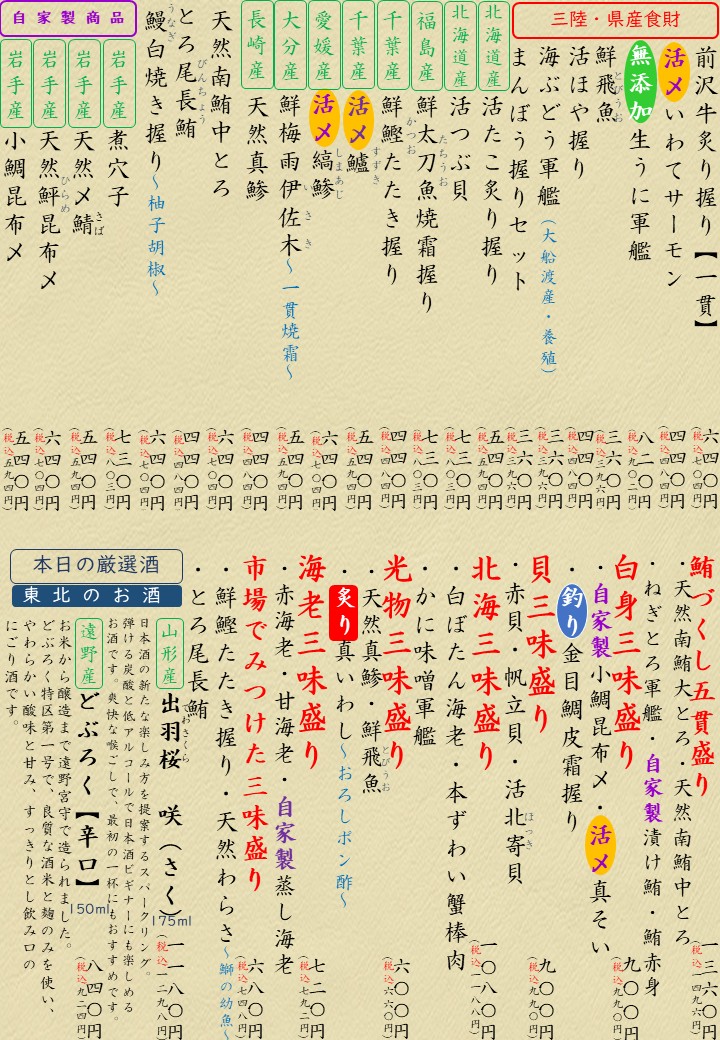 三陸・県産食財
前沢牛炙り握り【一貫】
六四〇円
(税込七〇四円)
活〆いわてサーモン
四四〇円
(税込四八四円)
無添加生うに軍艦
八二〇円
(税込九〇二円)
鮮飛魚
とびうお
三六〇円
(税込三九六円)
活ほや握り
四四〇円
(税込四八四円)
海ぶどう軍艦(大船渡産・養殖)
三六〇円
(税込三九六円)
まんぼう握りセット
三六〇円
(税込三九六円)
北海道産
活たこ炙り握り
五四〇円
(税込五九四円)
北海道産
活つぶ貝
七三〇円
(税込八〇三円)
福島産
鮮太刀魚焼霜握り
たちうお
七三〇円
(税込八〇三円)
千葉産
鮮鰹たたき握り
かつお
四四〇円
(税込四八四円)
千葉産
活〆鱸
すずき
五四〇円
(税込五九四円)
愛媛産
活〆縞鯵
しまあじ
六四〇円
(税込七〇四円)
大分産
鮮梅雨伊佐木～一貫焼霜～
いさき
五四〇円
(税込五九四円)
長崎産
天然真鯵
四四〇円
(税込四八四円)
天然南鮪中とろ
六四〇円
(税込七〇四円)
とろ尾長鮪
びんちょう
四四〇円
(税込四八四円)
鰻白焼き握り～柚子胡椒～
うなぎ
六四〇円
(税込七〇四円)
自家製商品
岩手産
煮穴子
七三〇円
(税込八〇三円)
岩手産
天然〆鯖
さば
五四〇円
(税込五九四円)
岩手産
天然鮃昆布〆
ひらめ
六四〇円
(税込七〇四円)
岩手産
小鯛昆布〆
五四〇円
(税込五九四円)
鮪づくし五貫盛り
・天然南鮪大とろ・天然南鮪中とろ
・ねぎとろ軍艦・自家製漬け鮪・鮪赤身
一三六〇円
(税込一四九六円)
白身三味盛り
・自家製小鯛昆布〆・活〆真そい
・釣り金目鯛皮霜握り
九〇〇円
(税込九九〇円)
貝三味盛り
・赤貝・帆立貝・活北寄貝
ほっき
九〇〇円
(税込九九〇円)
北海三味盛り
・白ぼたん海老・本ずわい蟹棒肉
・かに味噌軍艦
一〇八〇円
(税込一一八八円)
光物三味盛り
・天然真鯵・鮮飛魚
とびうお
・炙り真いわし～おろしポン酢～
六〇〇円
(税込六六〇円)
海老三味盛り
・赤海老・甘海老・自家製蒸し海老
七二〇円
(税込七九二円)
市場でみつけた三味盛り
・鮮鰹たたき握り・天然わらさ～鰤の幼魚～
・とろ尾長鮪
六八〇円
(税込七四八円)
本日の厳選酒
東北のお酒
山形産
出羽桜 咲(さく)
でわさくら
175ml
一一八〇円
(税込一二九八円)
日本酒の新たな楽しみ方を提案するスパークリング。
弾ける炭酸と低アルコールで日本酒ビギナーにも楽しめる
お酒です。爽快な喉ごしで、最初の一杯にもおすすめです。
遠野産
どぶろく【辛口】
150ml
八四〇円
(税込九二四円)
お米から醸造まで遠野宮守で造られました。
どぶろく特区第一号で、良質な酒米と麹のみを使い、
やわらかい酸味と甘み、すっきりとし飲み口の
にごり酒です。